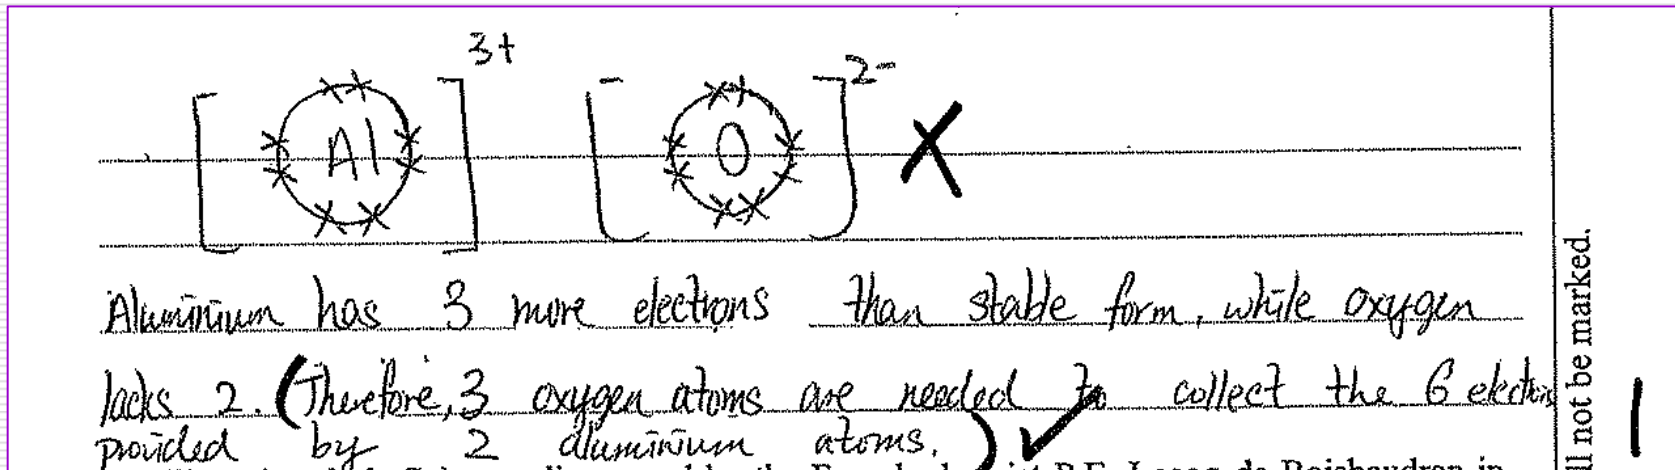 [Al]3+ [O]2-
Aluminium has 3 more electrons than stable form, while oxygen
lacks 2. (Therefore, 3 oxygen atoms are needed to collect the 6 electrons
provided by 2 aluminium atoms.)
ll not be marked.
1